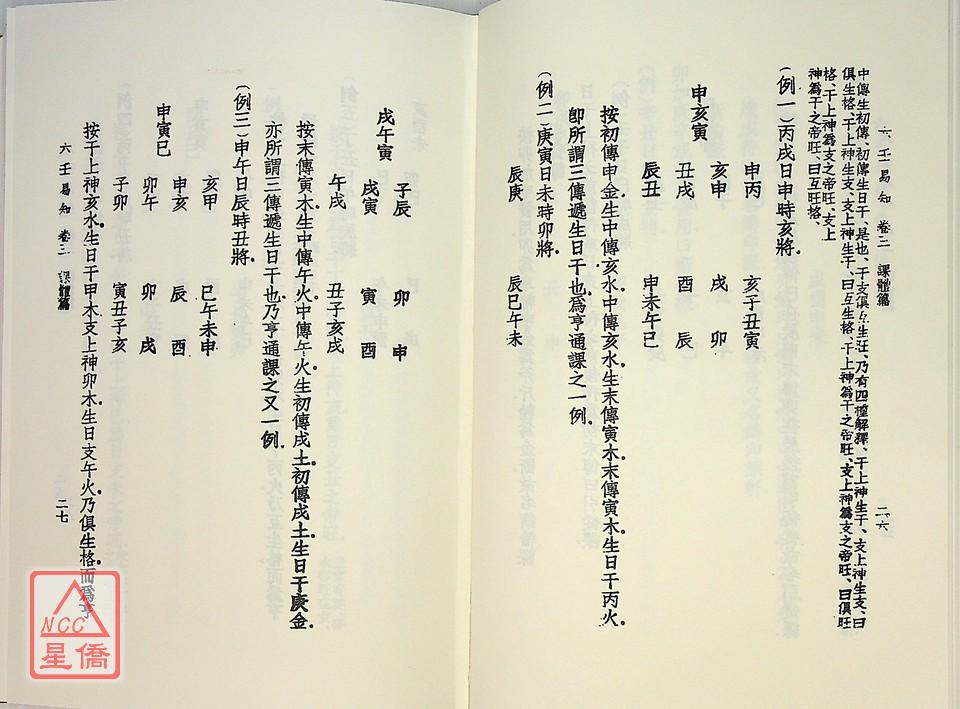 六壬易知 卷三 課體篇
二六
中傳生初傳、初傳生日干、是也、干支俱互生旺、乃有四種解釋、干上神生干、支上神生支、曰
俱生格、干上神生支、支上神生干、曰互生格、干上神為干之帝旺、支上神為支之帝旺、曰俱旺
格、干上神為支之帝旺、支上
神為干之帝旺、曰互旺格、
(例一)丙戌日申時亥將。
申丙 亥子丑寅
亥申 戌 卯
申亥寅
丑戌 酉 辰
辰丑 申未午巳
按初傳申金。生中傳亥水。中傳亥水生末傳寅木。末傳寅木。生日干丙火。
卽所謂三傳遞生日干也。為亨通課之一例。
(例二)庚寅日未時卯將。
辰庚 辰巳午未
子辰 卯 申
戌午寅
戌寅 寅 酉
午戌 丑子亥戌
按末傳寅木。生中傳午火。中傳午火。生初傳戌土。初傳戌土。生日干庚金。
亦所謂三傳遞生日干也。乃亨通課之又一例。
(例三)申午日辰時丑將。
亥甲 巳午未申
申亥 辰 酉
申寅巳
卯午 卯 戌
子卯 寅丑子亥
按干上神亥水。生日干甲木。支上神卯木。生日支午火。乃俱生格。而為亨
六壬易知 卷三 課體篇
二七
NCC
星僑